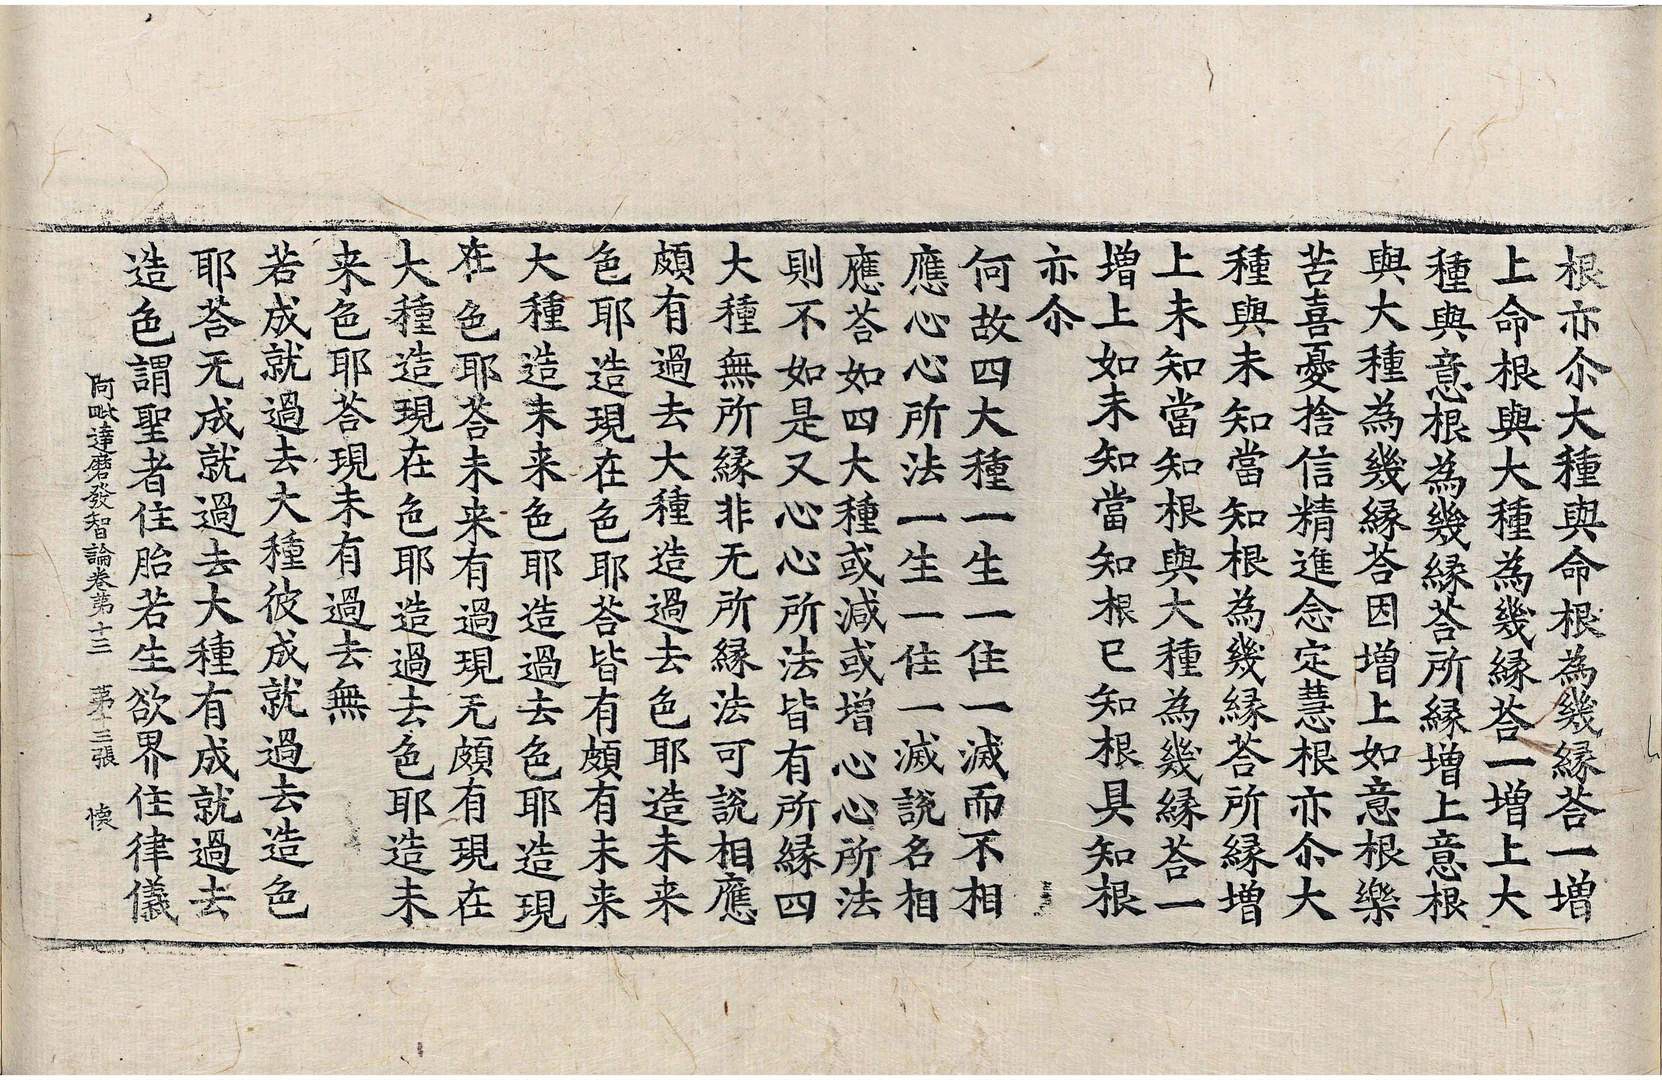 根亦尒大種與命根為幾緣荅一增
上命根與大種為幾緣荅一增上大
種與意根為幾緣荅所緣增上意根
與大種為幾緣荅因增上如意根樂
苦喜憂捨信精進念定慧根亦尒大
種與未知當知根為幾緣荅所緣增
上未知當知根與大種為幾緣荅一
增上如未知當知根已知根具知根
亦尒
何故四大種一生一住一滅而不相
應心心所法一生一住一滅說名相
應荅如四大種或減或增心心所法
則不如是又心心所法皆有所緣四
大種無所緣非无所緣法可說相應
頗有過去大種造過去色耶造未来
色耶造現在色耶荅皆有頗有未来
大種造未来色耶造過去色耶造現
在色耶荅未来有過現无頗有現在
大種造現在色耶造過去色耶造未
来色耶荅現未有過去無
若成就過去大種彼成就過去造色
耶荅无成就過去大種有成就過去
造色謂聖者住胎若生欲界住律儀
阿毗達磨發智論卷第十三 第十三張 懐